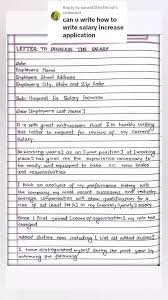 Reply to
comment
can u write how to
write salary increase
application
LETTER TO INCREASE THE SALARY
Date:
Employers Name
Employers Street Address
Employers City, State and Zip Code
Sub: Request for Salary Increase
Dear [Employers Last Name]
It is with great enthusiasm that I'm humbly writing
this letter to request for review of my current
Salary.
[Working years] as an [your position] at [working
place] has given me the experience necessary to
be ready and equipped to take on new tasks
and responsibilities
I think an analysis of my performance history with
the company, my most recent successes and industry
average compensation will show qualification for a
rise of at least [ ] in my [monthly/yearly] salary.
Since I first joined [name of organisation] my role has
changed
Added duties now include [List all added duties]
I have distinguished myself during the past year by
achieving the following.